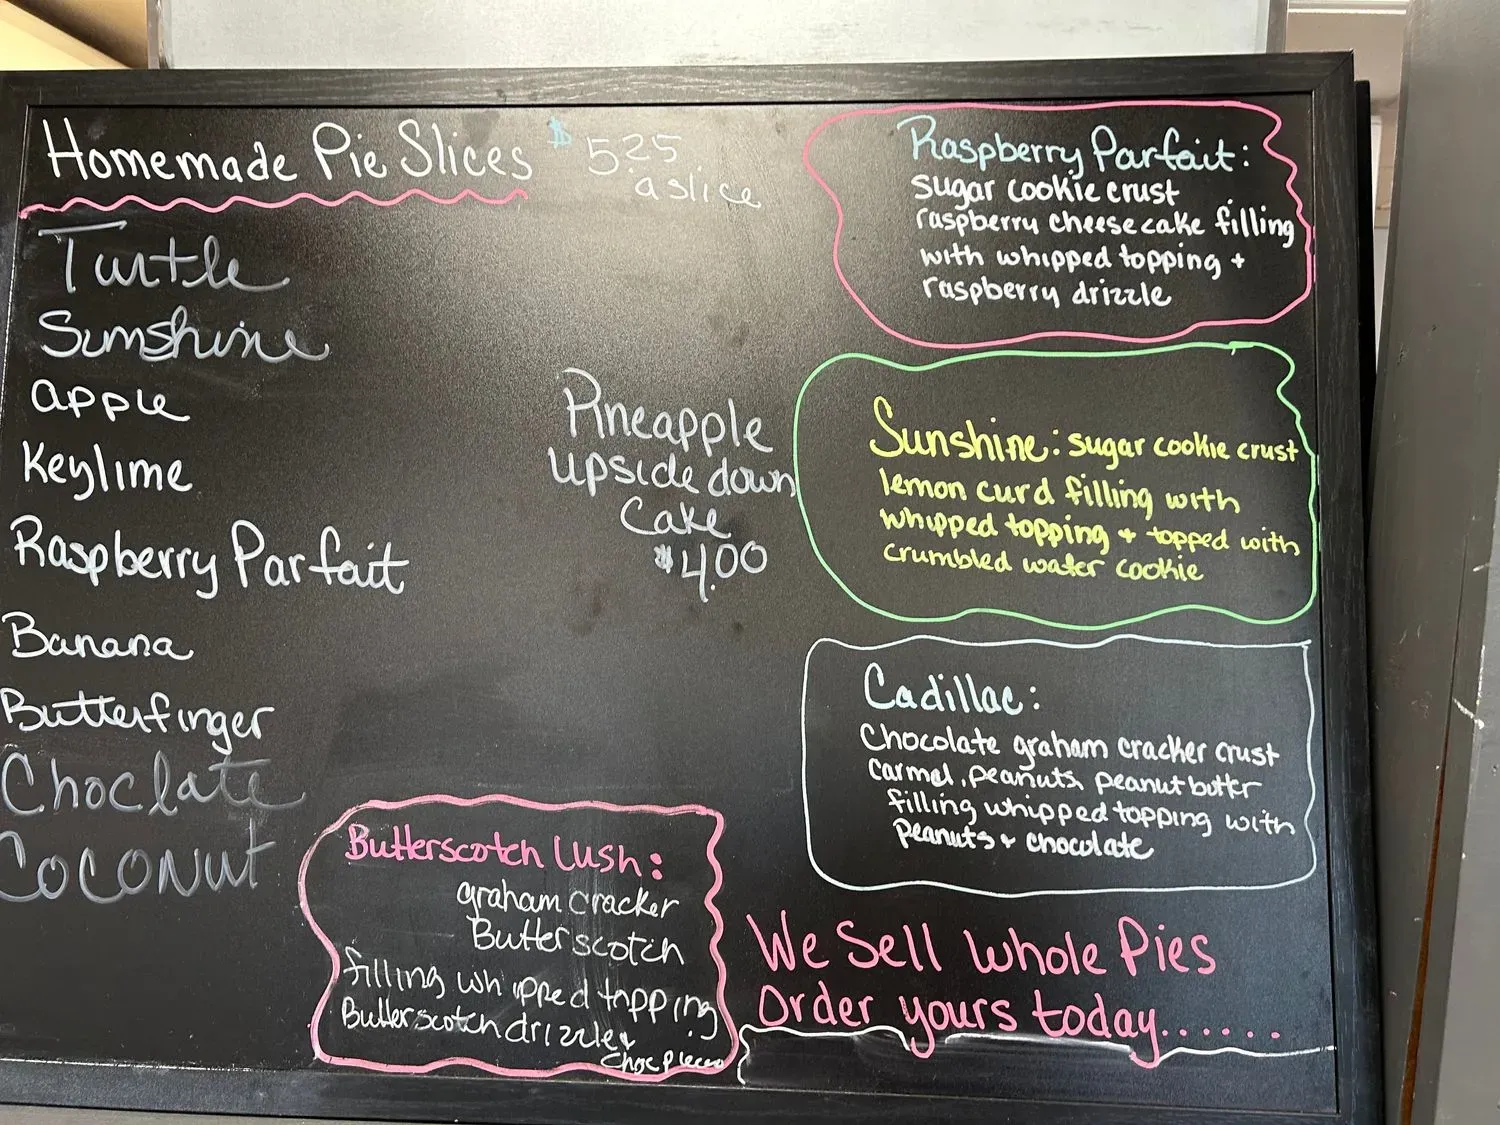 Homemade Pie Slices $5.25
a slice
Turtle
Sunshine
apple
Keylime
Raspberry Parfait
Banana
Butterfinger
Choclate
Coconut
Pineapple
upside down
Cake
$4.00
Butterscotch Lush:
graham cracker
Butterscotch
filling whipped topping
Butterscotch drizzle &
Choc pieces
Raspberry Parfait:
sugar cookie crust
raspberry cheesecake filling
with whipped topping +
raspberry drizzle
Sunshine: sugar cookie crust
lemon curd filling with
whipped topping + topped with
crumbled water cookie
Cadillac:
Chocolate graham cracker crust
Carmel, peanuts, peanutbutter
filling whipped topping with
peanuts + chocolate
We Sell Whole Pies
Order yours today......